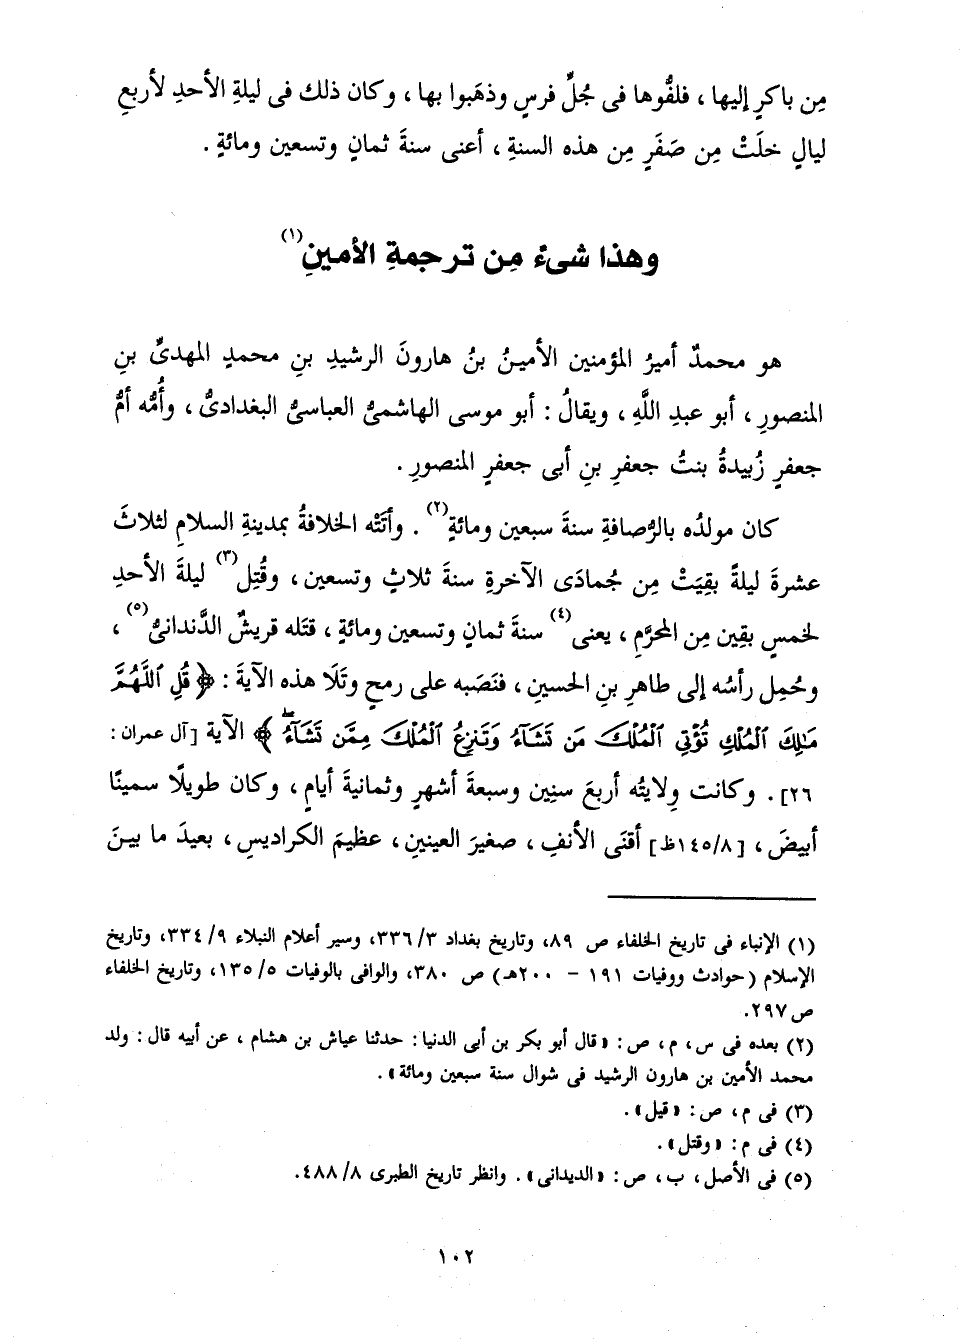 مِن باكرٍ إليها، فلفُّوها فى جُلٍّ فرسٍ وذهَبوا بها، وكان ذلك فى ليلةِ الأحدِ لأربعِ
ليالٍ خلَتْ مِن صَفَرٍ مِن هذه السنةِ، أعنى سنةَ ثمانٍ وتسعين ومائةٍ.
وهذا شىءٌ مِن ترجمةِ الأمينِ(١)
هو محمدٌ أميرُ المؤمنين الأمينُ بنُ هارونَ الرشيدِ بنِ محمدٍ المهدىِّ بنِ
المنصورِ، أبو عبدِ اللَّهِ، ويقالُ: أبو موسى الهاشمىُّ العباسىُّ البغدادىُّ، وأُمُّه أمُّ
جعفرٍ زُبيدةُ بنتُ جعفرِ بنِ أبى جعفرٍ المنصورِ.
كان مولدُه بالرُّصافةِ سنةَ سبعين ومائةٍ(٢). وأتَتْه الخلافةُ بمدينةِ السلامِ لثلاثَ
عشرةَ ليلةً بقِيَتْ مِن جُمادَى الآخرةِ سنةَ ثلاثٍ وتسعين، وقُتِل(٣) ليلةَ الأحدِ
لخمسٍ بقِين مِن المحرَّمِ، يعنى(٤) سنةَ ثمانٍ وتسعين ومائةٍ، قتَله قريشٌ الدَّندانىُّ(٥)،
وحُمِل رأسُه إلى طاهرِ بنِ الحسينِ، فنَصَبه على رمحٍ وتَلَا هذه الآيةَ: ﴿ قُلِ ٱللَّهُمَّ
مَٰلِكَ ٱلْمُلْكِ تُؤْتِى ٱلْمُلْكَ مَن تَشَآءُ وَتَنزِعُ ٱلْمُلْكَ مِمَّن تَشَآءُ ۖ ﴾ الآية [آل عمران:
٢٦]. وكانت وِلايتُه أربعَ سنِين وسبعةَ أشهرٍ وثمانيةَ أيامٍ، وكان طويلًا سمينًا
أبيضَ، [١٤٥/٨ظ] أقنَى الأنفِ، صغيرَ العينينِ، عظيمَ الكراديسِ، بعيدَ ما بينَ
(١) الإنباء فى تاريخ الخلفاء ص ٨٩، وتاريخ بغداد ٣/ ٣٣٦، وسير أعلام النبلاء ٩/ ٣٣٤، وتاريخ
الإسلام (حوادث ووفيات ١٩١ - ٢٠٠هـ) ص ٣٨٠، والوافى بالوفيات ٥/ ١٣٥، وتاريخ الخلفاء
ص ٢٩٧.
(٢) بعده فى س، م، ص: «قال أبو بكر بن أبى الدنيا: حدثنا عياش بن هشام، عن أبيه قال: ولد
محمد الأمين بن هارون الرشيد فى شوال سنة سبعين ومائة».
(٣) فى م، ص: «قيل».
(٤) فى م: «وقتل».
(٥) فى الأصل، ب، ص: «الديدانى». وانظر تاريخ الطبرى ٨/ ٤٨٨.
١٠٢